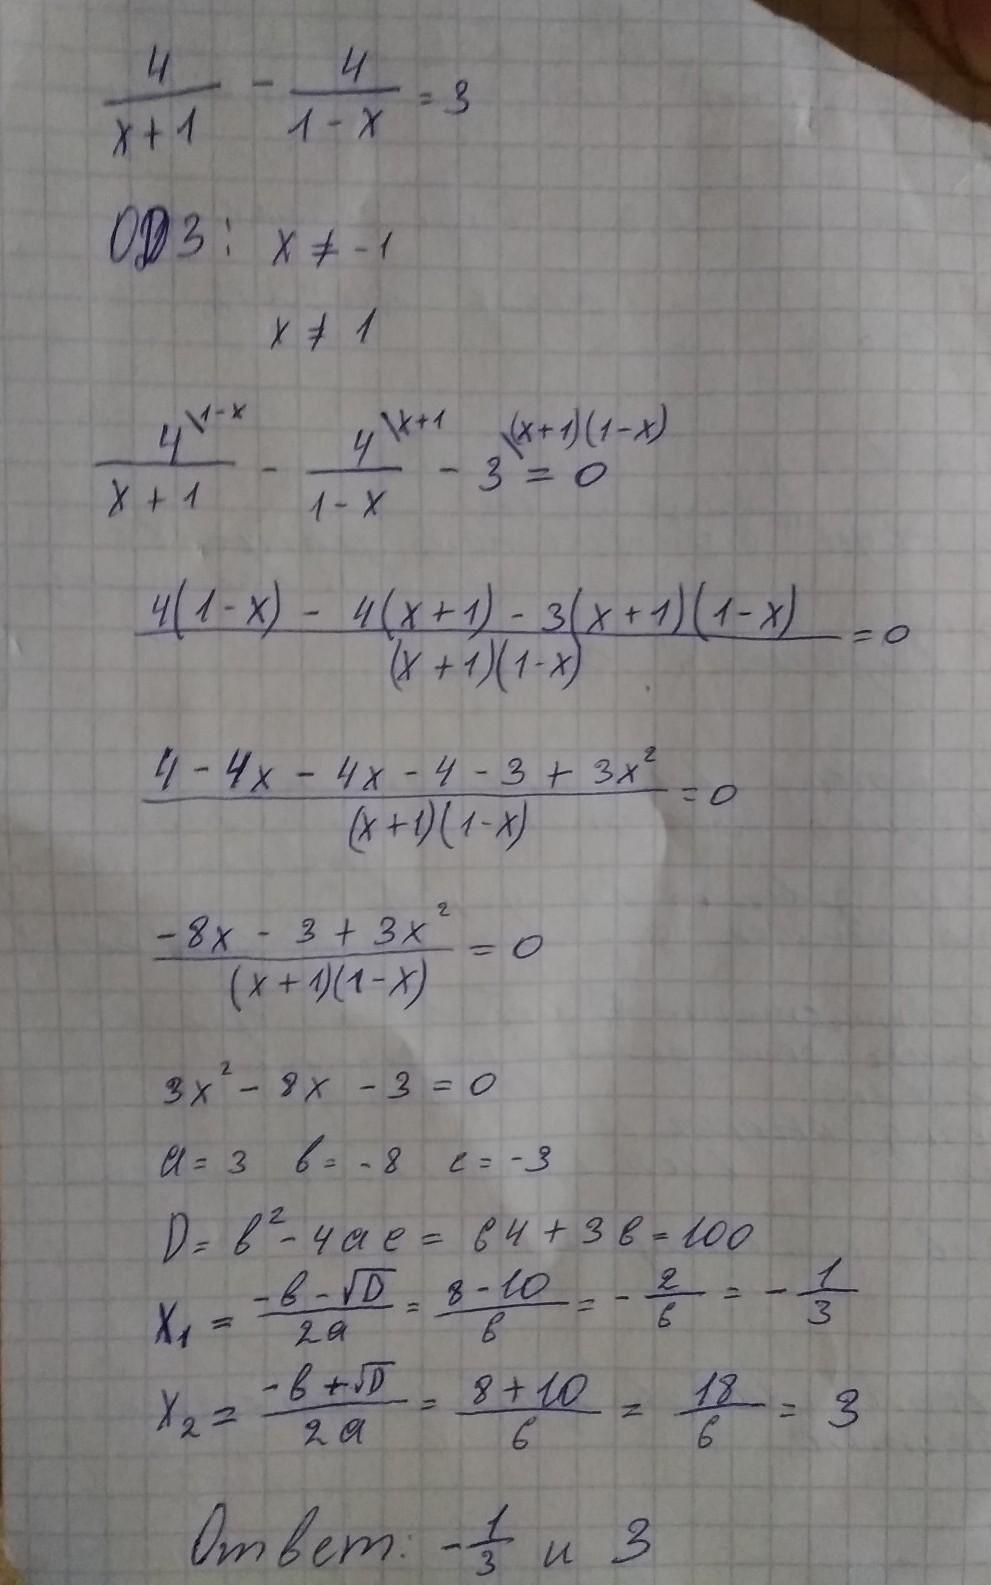 4/(x+1) - 4/(1-x) = 3
ОДЗ: x ≠ -1
x ≠ 1
4\1-x/(x+1) - 4\x+1/(1-x) - 3\(x+1)(1-x) = 0
(4(1-x) - 4(x+1) - 3(x+1)(1-x))/((x+1)(1-x)) = 0
(4 - 4x - 4x - 4 - 3 + 3x²)/((x+1)(1-x)) = 0
(-8x - 3 + 3x²)/((x+1)(1-x)) = 0
3x² - 8x - 3 = 0
a = 3 в = -8 c = -3
D = в² - 4ac = 64 + 36 = 100
x₁ = (-в - √D)/(2a) = (8-10)/6 = -2/6 = -1/3
x₂ = (-в + √D)/(2a) = (8+10)/6 = 18/6 = 3
Ответ: -1/3 и 3